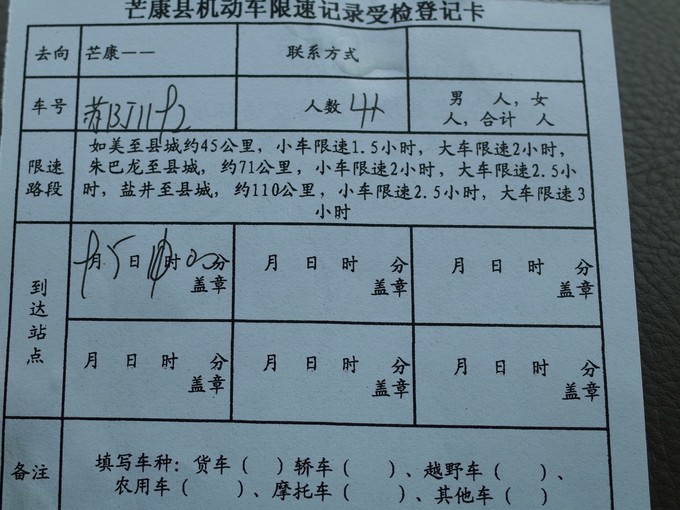 芒康县机动车限速记录受检登记卡
去向 芒康—— 联系方式
车号 人数 男 人，女
人，合计 人
限速路段
如美至县城约45公里，小车限速1.5小时，大车限速2小时，
朱巴龙至县城，约71公里，小车限速2小时，大车限速2.5小
时，盐井至县城，约110公里，小车限速2.5小时，大车限速3
小时
到达站点
月5日 时 分 月 日 时 分 月 日 时 分
盖章 盖章 盖章
月 日 时 分 月 日 时 分 月 日 时 分
盖章 盖章 盖章
备注
填写车种：货车（ ）轿车（ ）、越野车（ ）、
农用车（ ）、摩托车（ ）、其他车（ ）